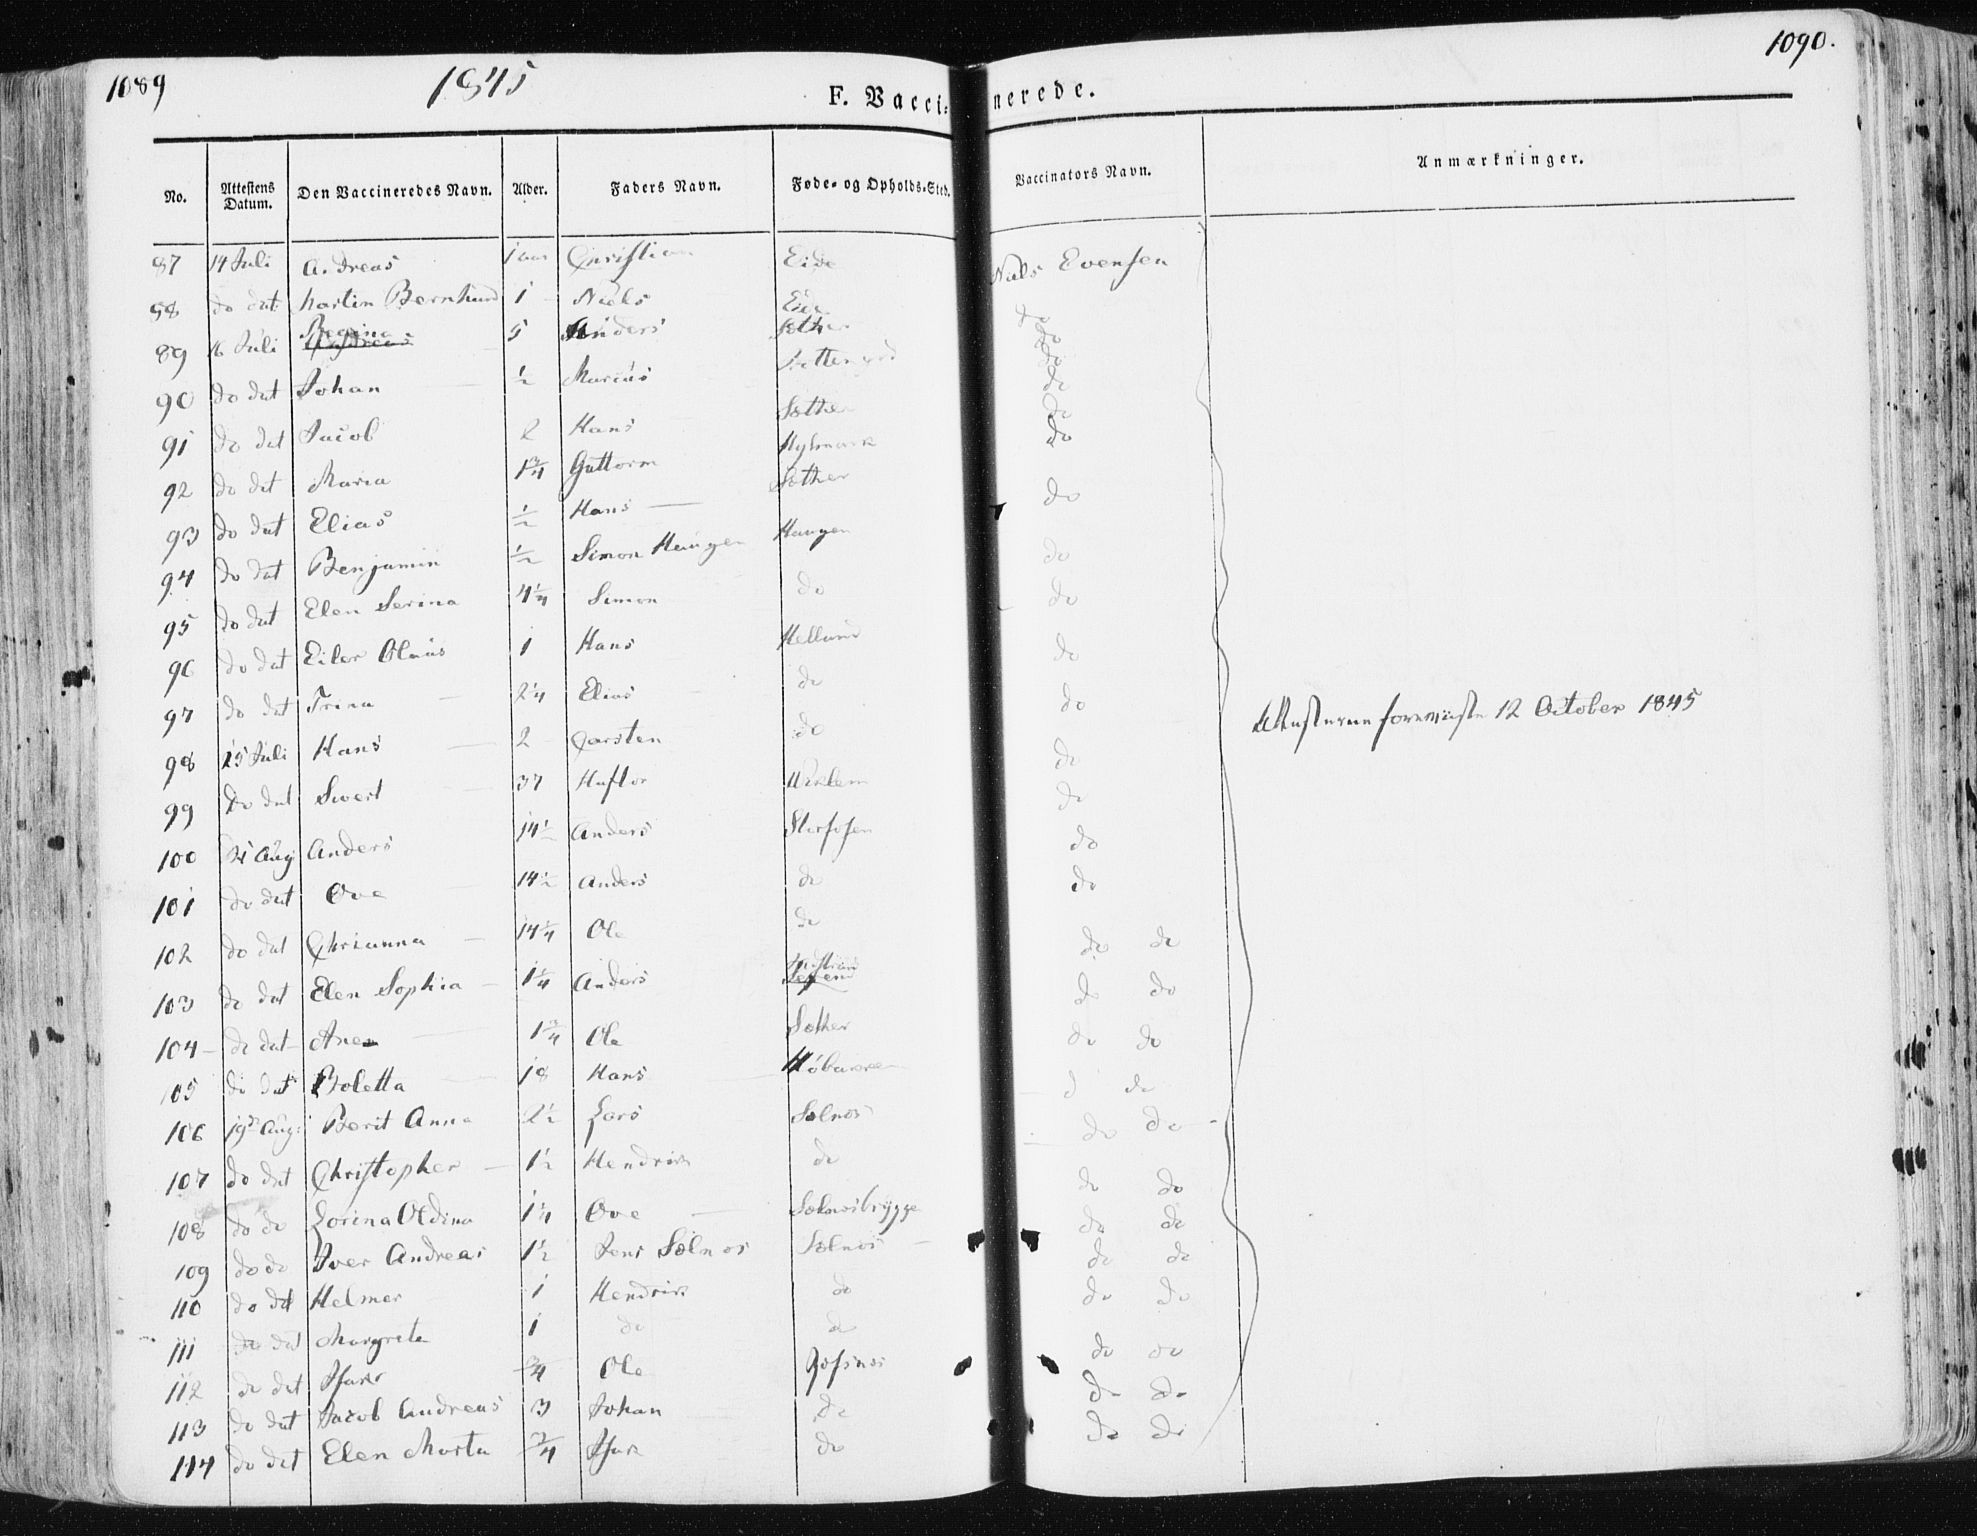 1089
1845
F. Vacci-
nerede.
1090.
No. Attestens Datum. Den Vaccineredes Navn. Alder. Faders Navn. Føde- og Opholds-Sted. Vaccinators Navn. Anmærkninger.
87 14 Juli Andreas 1 aar Christian Eide Niels Evensen
88 do dat: Martin Bernhard 1 Niels Eide do
89 16 Juli Regina 5 Anders Sæther do
90 do dat Johan ½ Marius do
91 do dat Jacob 2 Hans Sæther do
92 do dat Maria 1¾ Guttorm do
93 do dat Elias ½ Hans Sæther do
94 do dat Benjamin ½ Simon Haugen Haugen do
95 do dat Elen Serina 4¼ Simon do do
96 do dat Eiler Olaus 1 Hans Hellund do
97 do dat Trina 2¼ Elias do do
98 25 Juli Hans 2 Carsten do do
99 do dat Sivert 37 Haftor do
100 Aug Anders 14½ Anders do
101 do dat Ove 14½ Anders do do
102 do dat Chrianna 14¼ Ole do do do
103 do dat Elen Sophia 1¼ Anders do do
104 do dat Ane 1¾ Ole Sæther do do
105 do dat Boletta 18 Hans do do
106 19de Aug: Berit Anna 2½ Lars Solnos do do
107 do dat Christopher 1½ Hendrik do do do
108 do do Lorina Oldina 1¼ Ove Solnosbrygge do do
109 do do Iver Andreas 1½ Jens Solnos Solnos do do
110 do dat Helmer 1 Hendrik do do do
111 do dat Margrete 1 do do do do
112 do dat Isak ¾ Ole do do
113 do dat Jacob Andreas 3 Johan do do do
114 do dat Elen Marta ¾ Isak do do do
12 October 1845